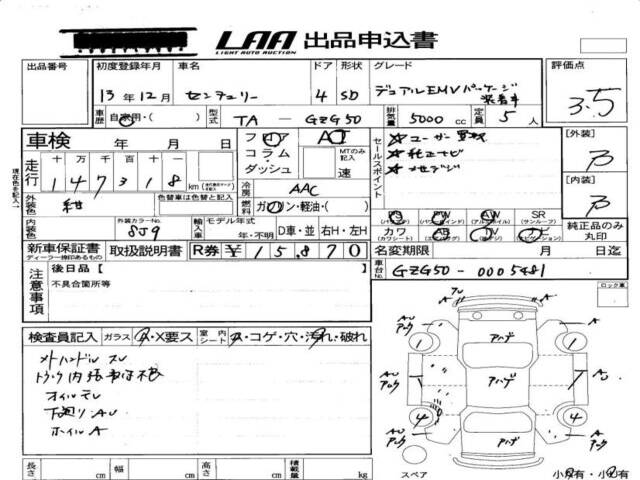 LAA 出品申込書
LIGHT AUTO AUCTION
出品番号 初度登録年月 車名 ドア 形状 グレード 評価点
13年12月 センチュリー 4 SD デュアルEMVパッケージ 3.5
装着車
車歴 自家用・( ) 型式 TA - GZG50 排気量 5000cc 定員 5人
車検 年 月 日 フロア AT
コラム・ MTのみ記入
ダッシュ 速
セールスポイント
☆ユーザー買取
☆純正ナビ
【外装】
B
【内装】
B
走行 十万千百十 147318km
冷房 AAC
外装色 紺 色替車は色替と記入
燃料 ガソリン・軽油・( )
PS PW AW SR
(パワステ) (パワーウインド) (アルミホイル) (サンルーフ)
内装色 外装カラーNo. 8J9 輸入車 モデル年式 年・不明 D車・並 右H・左H
カワ AB TV ナビ
(カワシート) (エアバッグ) (テレビ) (ナビゲーション)
純正品のみ丸印
新車保証書 取扱説明書 R券 ¥15,870
ディーラー捺印あるもの
名変期限 月 日迄
車台No. GZG50-0005481
注意事項 後日品【 】
不具合箇所等
ロック車
検査員記入 ガラス A・X要ス 室内シート A・コゲ・穴・汚れ・破れ
メトハンドルスレ
トランク内張
オイルモレ
下廻りAU
ホイルA
AU A
アハゲ
アハゲ
アハゲ
1 1
4 4
長さ cm 幅 cm 高さ cm 積載量 kg
スペア
現在色を記入